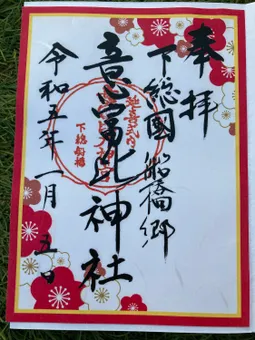 奉拝
下総國船橋郷
意富比神社
令和五年一月五日
下総船橋